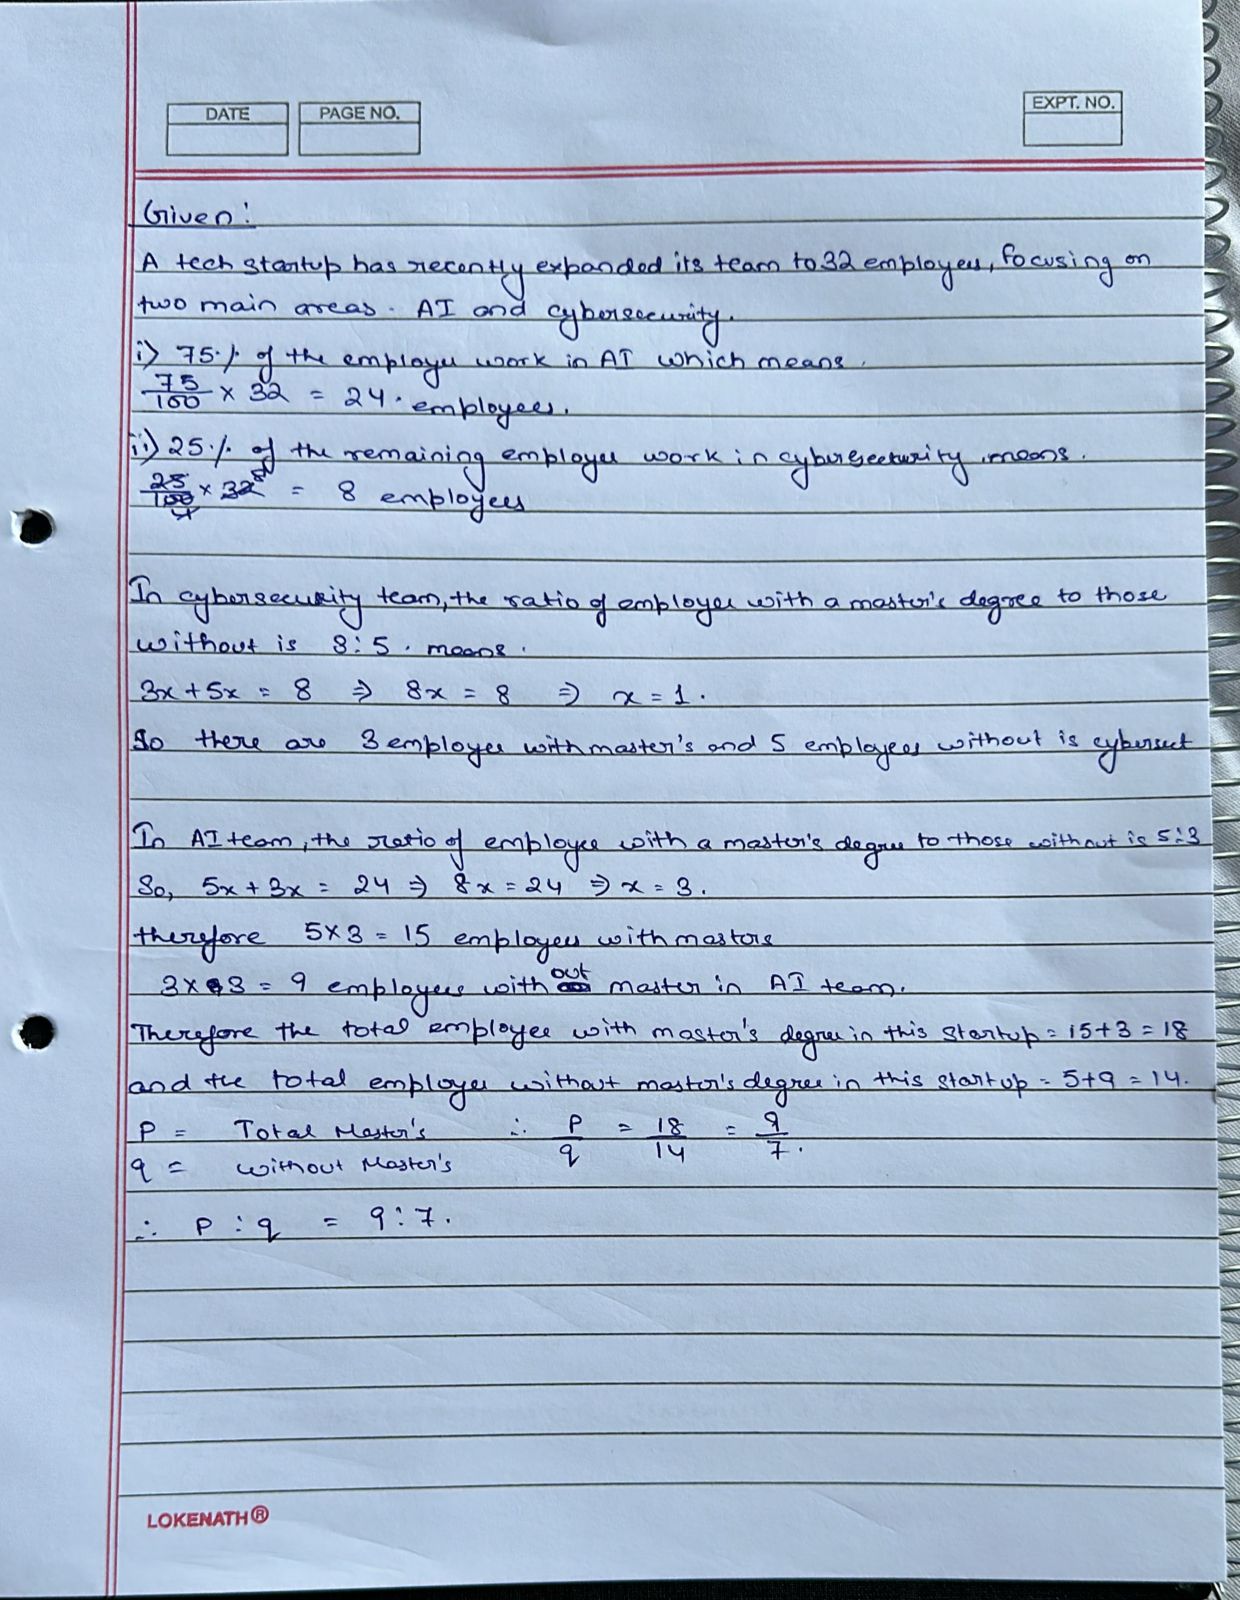 DATE
PAGE NO.
EXPT. NO.
Given:
A tech startup has recently expanded its team to 32 employees, focusing on
two main areas. AI and cybersecurity.
i) 75% of the employee work in AI which means.
75/100 × 32 = 24. employees.
ii) 25% of the remaining employee work in cybersecturity means.
25/100 × 32 = 8 employees
4 8
In cybersecurity team, the ratio of employee with a master's degree to those
without is 3:5. means.
3x + 5x = 8 ⇒ 8x = 8 ⇒ x = 1.
So there are 3 employee with master's and 5 employees without is cybersect
In AI team, the ratio of employee with a master's degree to those without is 5:3
So, 5x + 3x = 24 ⇒ 8x = 24 ⇒ x = 3.
therefore 5×3 = 15 employees with masters
3×3 = 9 employees without master in AI team.
Therefore the total employee with master's degree in this startup = 15+3 = 18
and the total employee without master's degree in this startup = 5+9 = 14.
P = Total Master's ∴ P/q = 18/14 = 9/7.
q = without Master's
∴ P : q = 9:7.
LOKENATH®